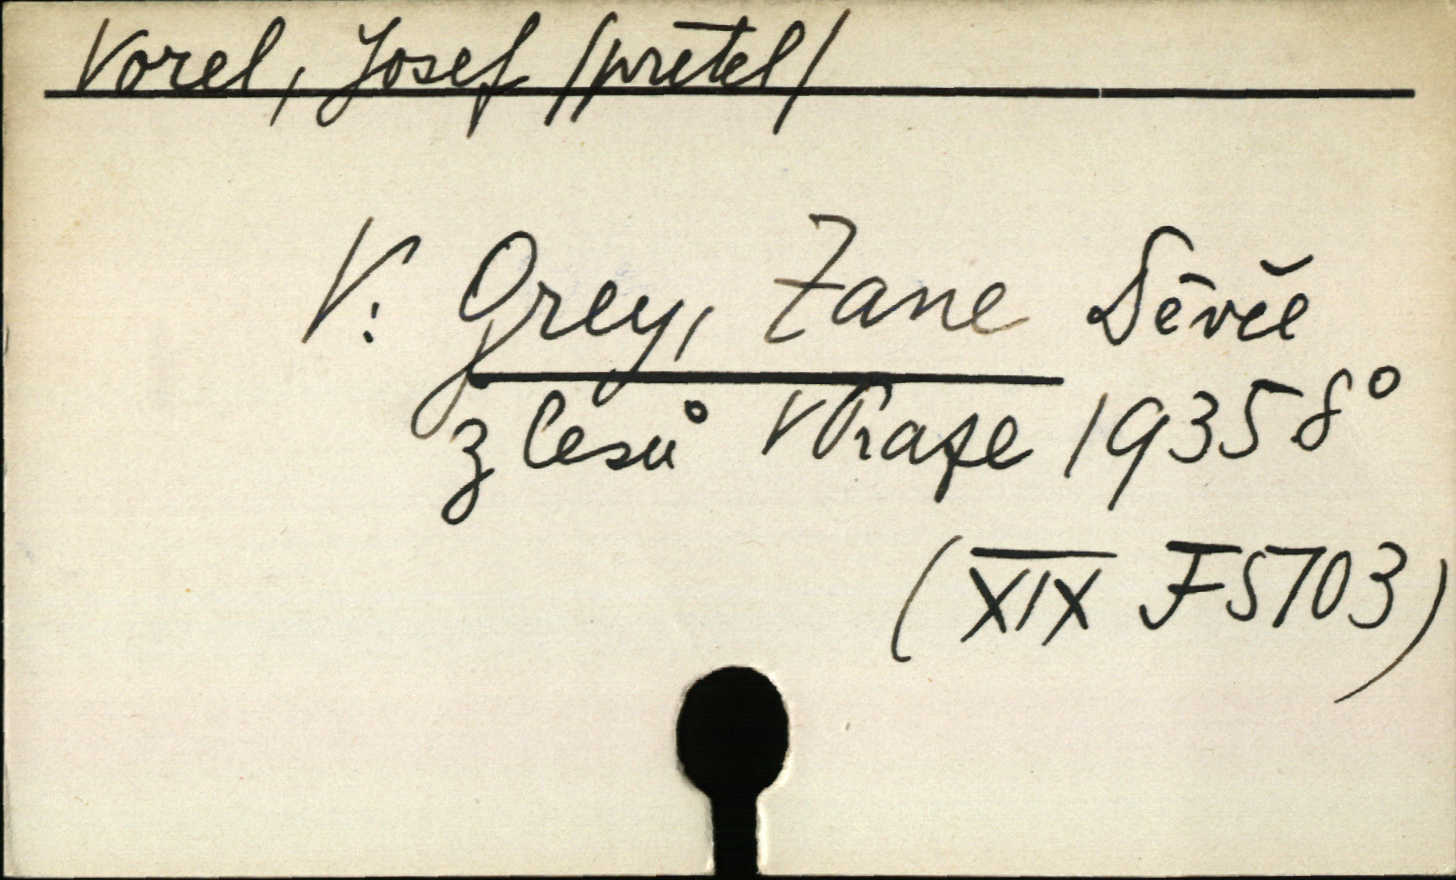 Vorel, Josef /přetel/
V: Grey, Zane Děvče
z lesů V Praze 1935 8°
(XIX F 5703)